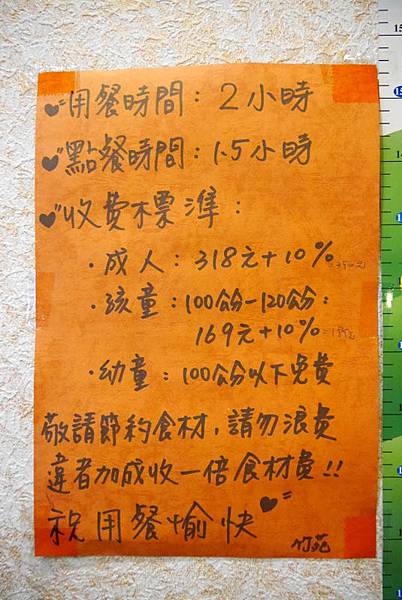 用餐時間：2小時
點餐時間：1.5小時
收費標準：
・成人：318元+10%
・孩童：100公分-120公分：
169元+10%
・幼童：100公分以下免費
敬請節約食材，請勿浪費
違者加成收一倍食材費!!
祝用餐愉快
竹苑
15